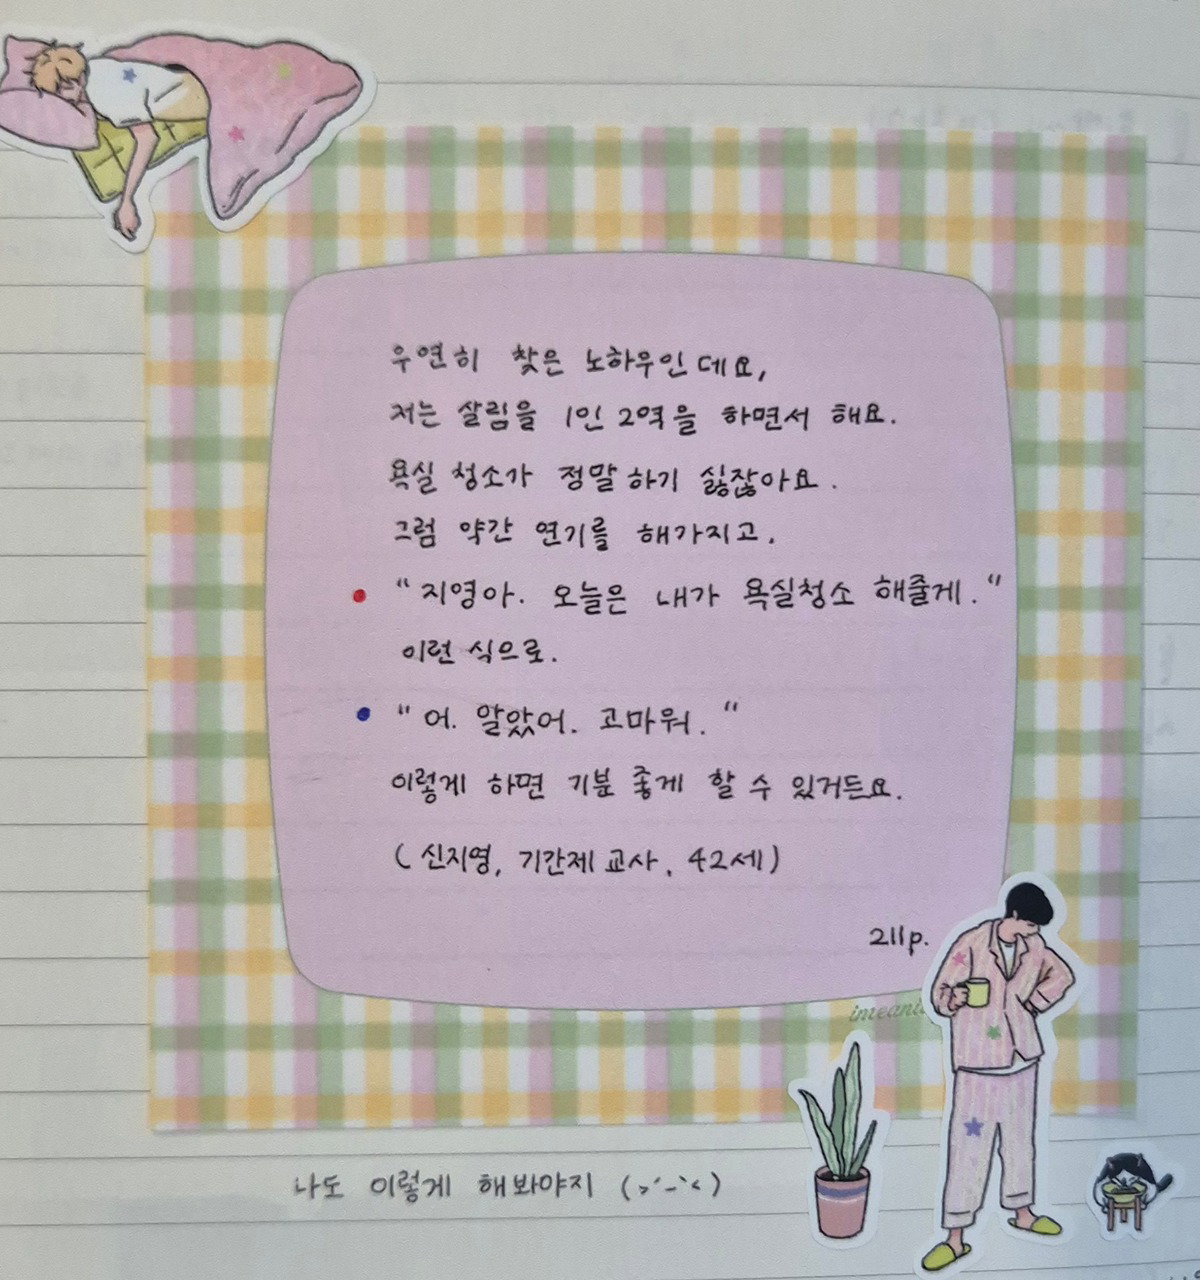 우연히 찾은 노하우인데요,
저는 살림을 1인 2역을 하면서 해요.
욕실 청소가 정말 하기 싫잖아요.
그럼 약간 연기를 해가지고.
"지영아. 오늘은 내가 욕실청소 해줄게."
이런 식으로.
"어. 알았어. 고마워."
이렇게 하면 기분 좋게 할 수 있거든요.
(신지영, 기간제 교사, 42세)
211p.
나도 이렇게 해봐야지 (>´-`<)